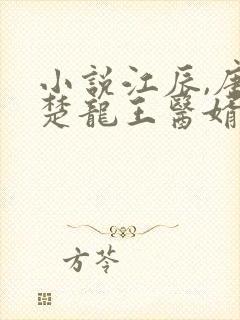 小說江辰,唐
楚龍王醫婿
方苓